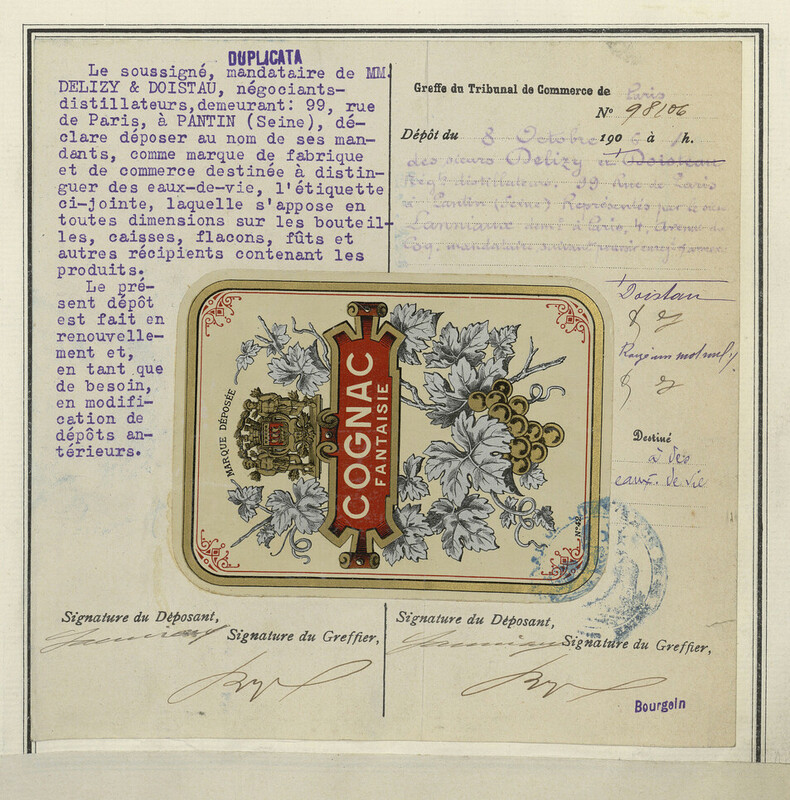 DUPLICATA
Le soussigné, mandataire de MM.
DELIZY & DOISTAU, négociants-
distillateurs, demeurant: 99, rue
de Paris, à PANTIN (Seine), dé-
clare déposer au nom de ses man-
dants, comme marque de fabrique
et de commerce destinée à distin-
guer des eaux-de-vie, l'étiquette
ci-jointe, laquelle s'appose en
toutes dimensions sur les bouteil-
les, caisses, flacons, fûts et
autres récipients contenant les
produits.
Le pré-
sent dépôt
est fait en
renouvelle-
ment et,
en tant que
de besoin,
en modifi-
cation de
dépôts an-
térieurs.
Greffe du Tribunal de Commerce de Paris
N° 98106
Dépôt du 8 Octobre 1906 à 1 h.
des sieurs Delizy et Doistau
distillateurs, 99 Rue de Paris
à Pantin (Seine) Représentés par le sieur
Lanniaux demt à Paris, 4, Avenue du
Coq, mandataire suivant
Doistau
Rayé un mot nul
Destiné
à des
eaux-de-vie
MARQUE DÉPOSÉE
COGNAC
FANTAISIE
N° 52
Signature du Déposant,
Signature du Greffier,
Signature du Déposant,
Signature du Greffier,
Bourgoin